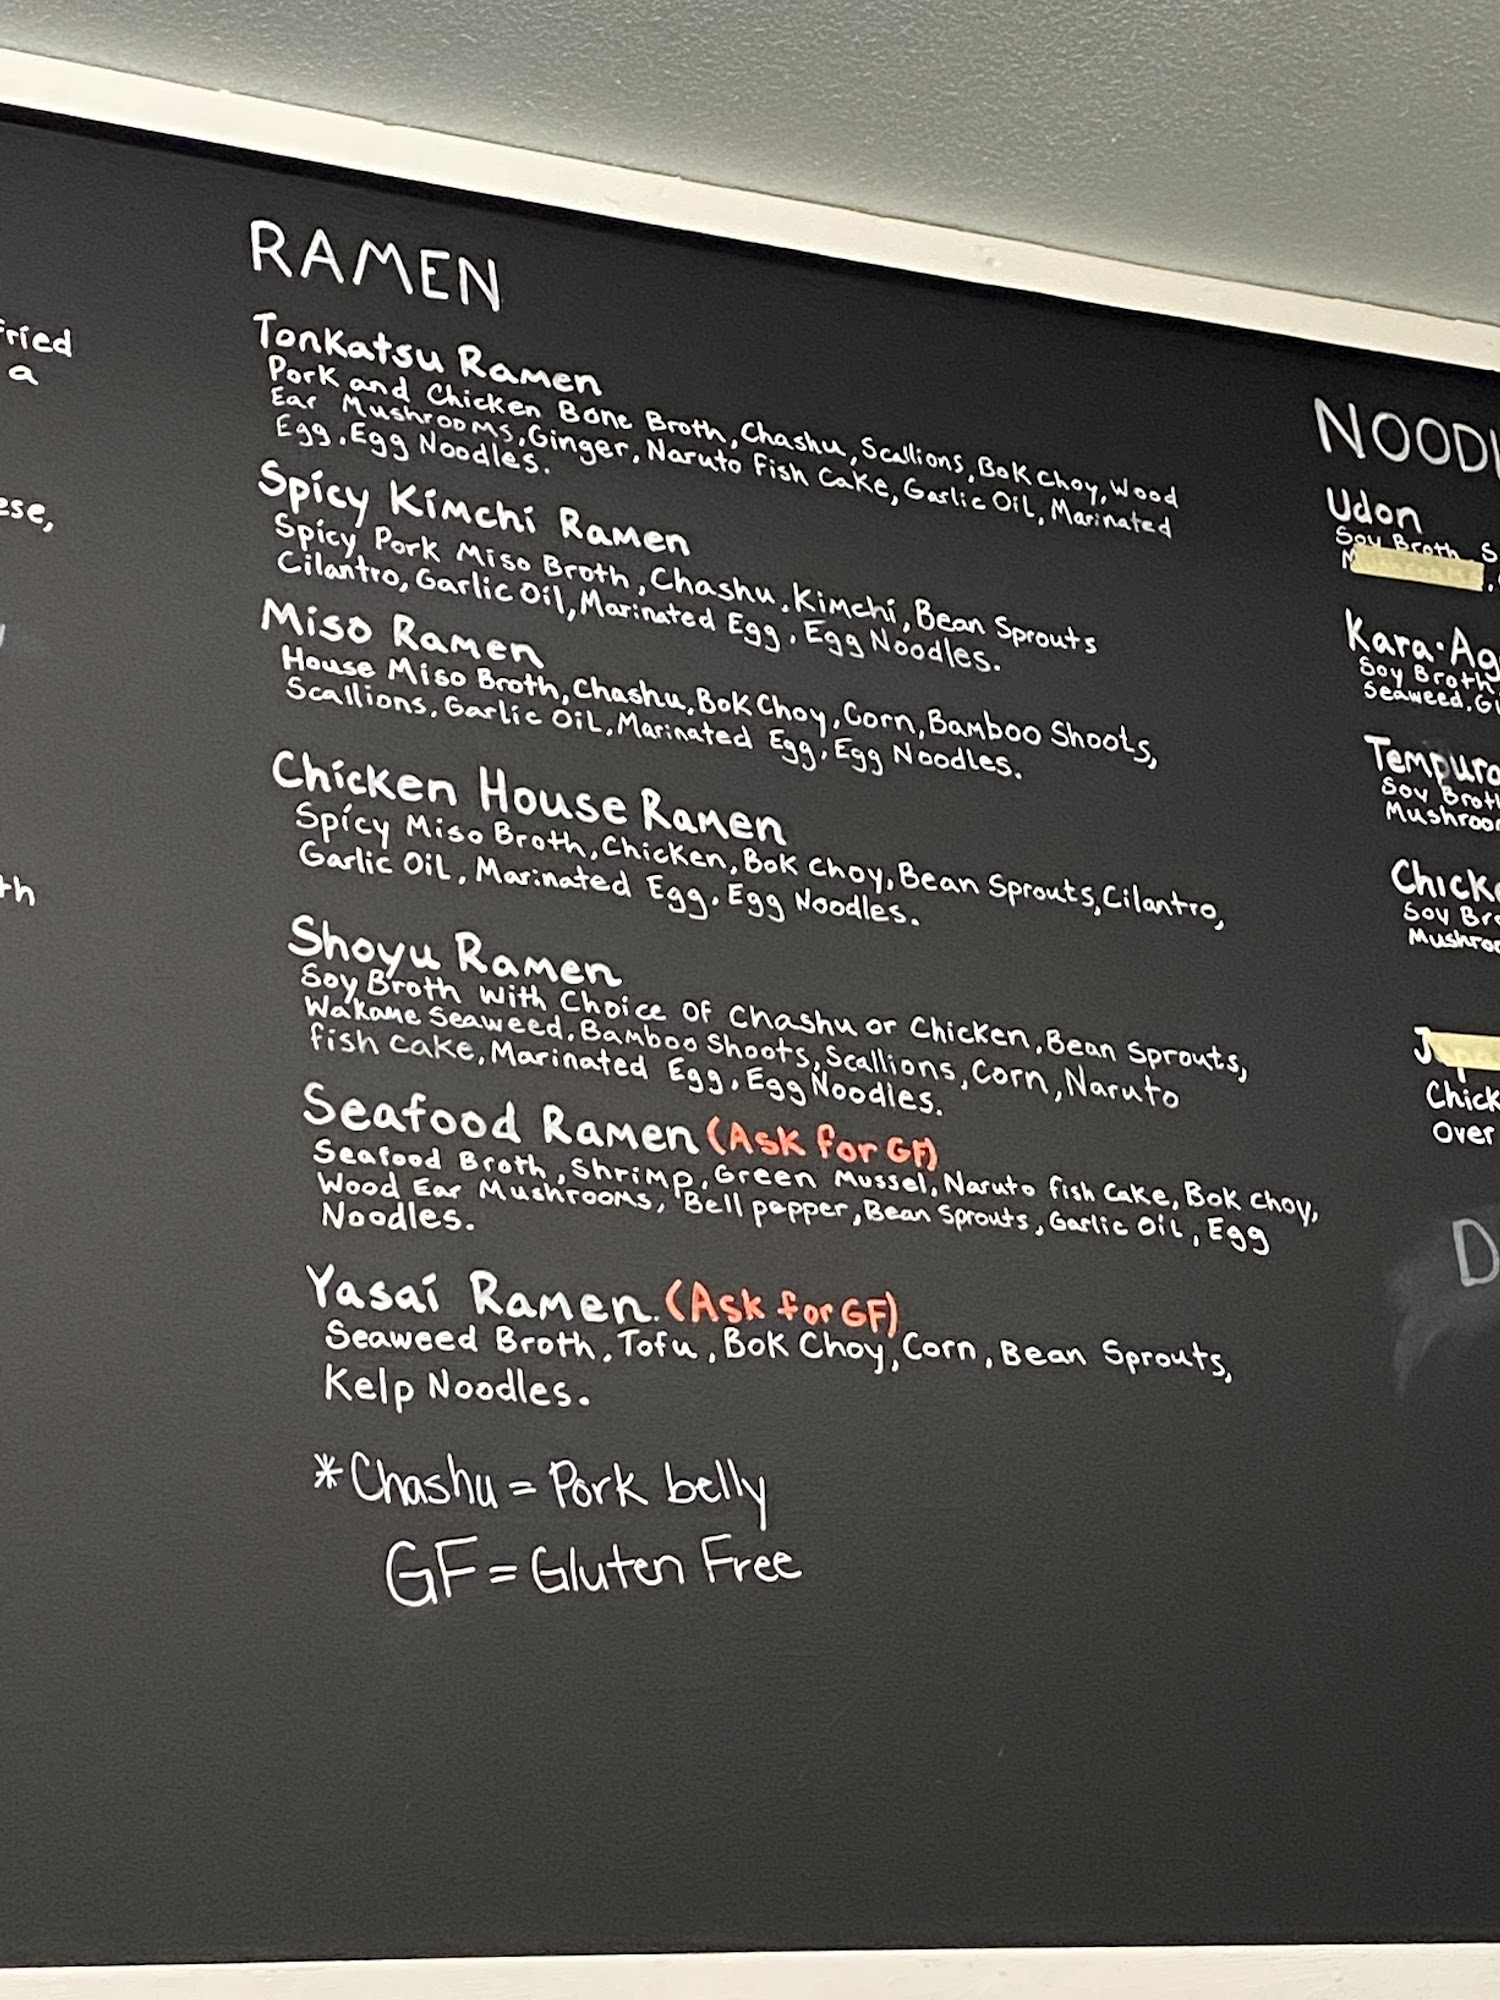 fried
a
ese,
th
RAMEN
Tonkatsu Ramen
Pork and Chicken Bone Broth, Chashu, Scallions, Bok Choy, Wood
Ear Mushrooms, Ginger, Naruto Fish Cake, Garlic Oil, Marinated
Egg, Egg Noodles.
Spicy Kimchi Ramen
Spicy Pork Miso Broth, Chashu, Kimchi, Bean Sprouts
Cilantro, Garlic Oil, Marinated Egg, Egg Noodles.
Miso Ramen
House Miso Broth, Chashu, Bok Choy, Corn, Bamboo Shoots,
Scallions, Garlic Oil, Marinated Egg, Egg Noodles.
Chicken House Ramen
Spicy Miso Broth, Chicken, Bok Choy, Bean Sprouts, Cilantro,
Garlic Oil, Marinated Egg, Egg Noodles.
Shoyu Ramen
Soy Broth with Choice of Chashu or Chicken, Bean Sprouts,
Wakame Seaweed, Bamboo Shoots, Scallions, Corn, Naruto
fish cake, Marinated Egg, Egg Noodles.
Seafood Ramen (Ask for GF)
Seafood Broth, Shrimp, Green Mussel, Naruto fish Cake, Bok Choy,
Wood Ear Mushrooms, Bell pepper, Bean Sprouts, Garlic Oil, Egg
Noodles.
Yasai Ramen. (Ask for GF)
Seaweed Broth, Tofu, Bok Choy, Corn, Bean Sprouts,
Kelp Noodles.
*Chashu = Pork belly
GF = Gluten Free
NOOD
Udon
Soy Broth, S
M
Kara·Ag
Soy Broth,
Seaweed, G
Tempura
Soy Brot
Mushroo
Chick
Soy Br
Mushro
J
Chick
over
D